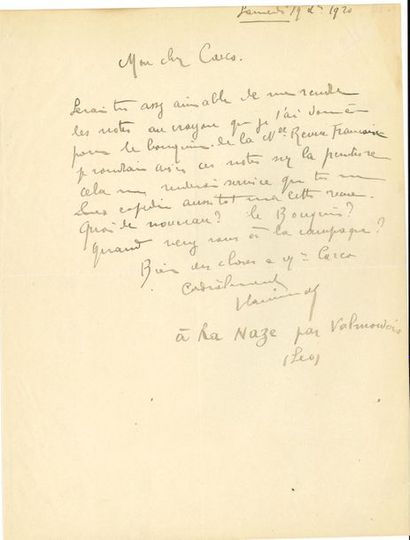 Samedi 19 1920
Mon cher Carco.
Serais tu assez aimable de me rendre
les notes au crayon que je t'ai donné
pour le bouquin de la Nlle Revue française
je voudrais avoir ces notes sur la peinture
cela me rendrait service que tu me
les aussitot cette
Quoi de nouveau? le Bouquin?
Quand venez vous à la campagne?
Bien des choses a Me Carco
Cordialement
Vlaminck
à La Naze par Valmondois
(S&O)